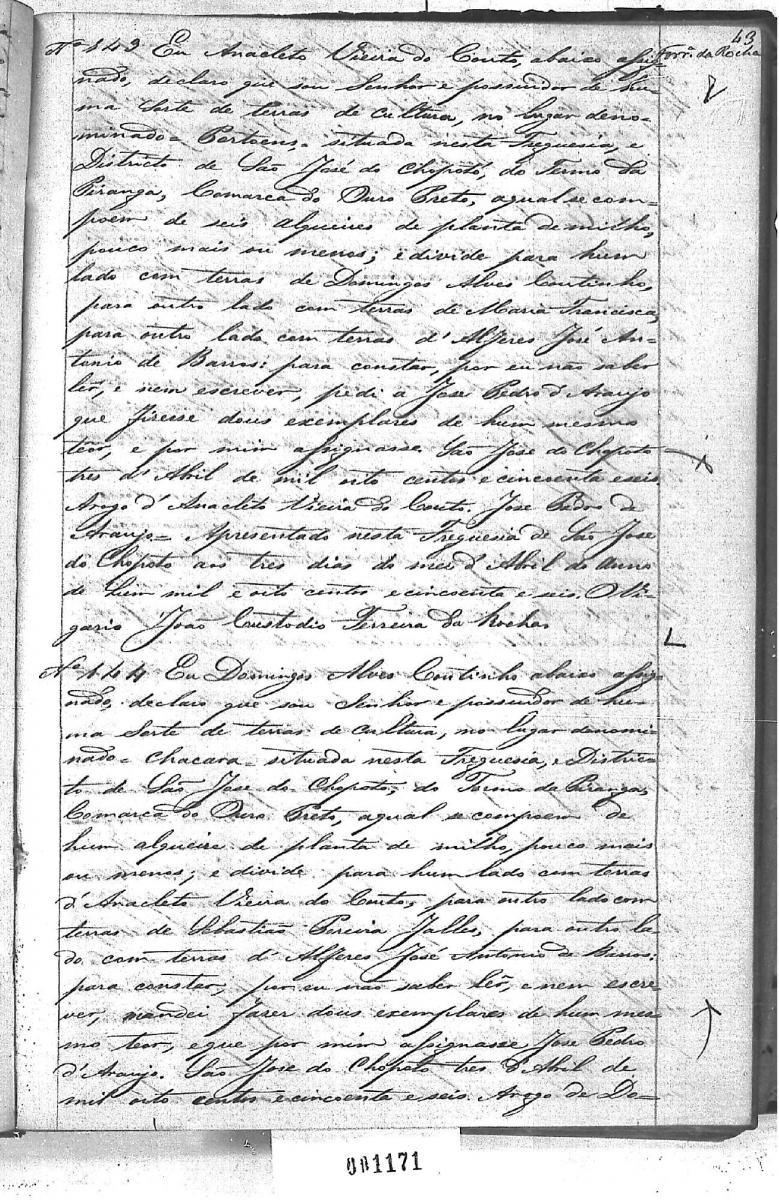 43
Ferr.ª da Rocha
Nº 143 Eu Anacleto Vieira do Couto, abaixo assig
nado, declaro que sou Senhor e possuidor de hu-
ma Sorte de terras de cultura, no lugar deno-
minado = = situada nesta Freguesia, e
Districto de São José do Chopotó, do Termo da
Piranga, Comarca do Ouro Preto, aqual se com-
poem de seis alqueires de planta de milho,
pouco mais ou menos; e divide para hum
lado com terras de Domingos Alves Coutinho,
para outro lado com terras de Maria Francisca,
para outro lado com terras d'Alferes José An-
tonio de Barros: para constar, por eu não saber
lêr, e nem escrever, pedi a Jose Pedro d'Araujo
que fizesse dous exemplares de hum mesmo
teôr, e por mim assignasse. São Jose do Chopoto
tres d'Abril de mil oito centos e cincoenta e seis
Arogo d'Anacleto Vieira do Couto. Jose Pedro de
Araujo = Apresentado nesta Freguesia de São Jose
do Chopoto aos tres dias do mez d'Abril do anno
de hum mil e oito centos e cincoenta e seis. O Vi-
gario João Custodio Ferreira da Rocha.
Nº 144 Eu Domingos Alves Coutinho abaixo assig
nado, declaro que sou Senhor e possuidor de hu-
ma Sorte de terras de cultura, no lugar denomi-
nado = Chacara = situada nesta Freguesia, e Distric-
to de São Jose do Chopoto, do Termo da Piranga,
Comarca do Ouro Preto, aqual se compoem de
hum alqueire de planta de milho, pouco mais
ou menos; e divide para hum lado com terras
d'Anacleto Vieira do Couto, para outro lado com
terras de Sebastião Pereira Jalles, para outro la-
do com terras d'Alferes José Antonio de Barros:
para constar, por eu não saber lêr, e nem escre-
ver, mandei fazer dous exemplares de hum mes-
mo teor, e que por mim assignasse Jose Pedro
d'Araujo. São Jose do Chopoto tres d'Abril de
mil oito centos e cincoenta e seis. Arogo de Do-
001171